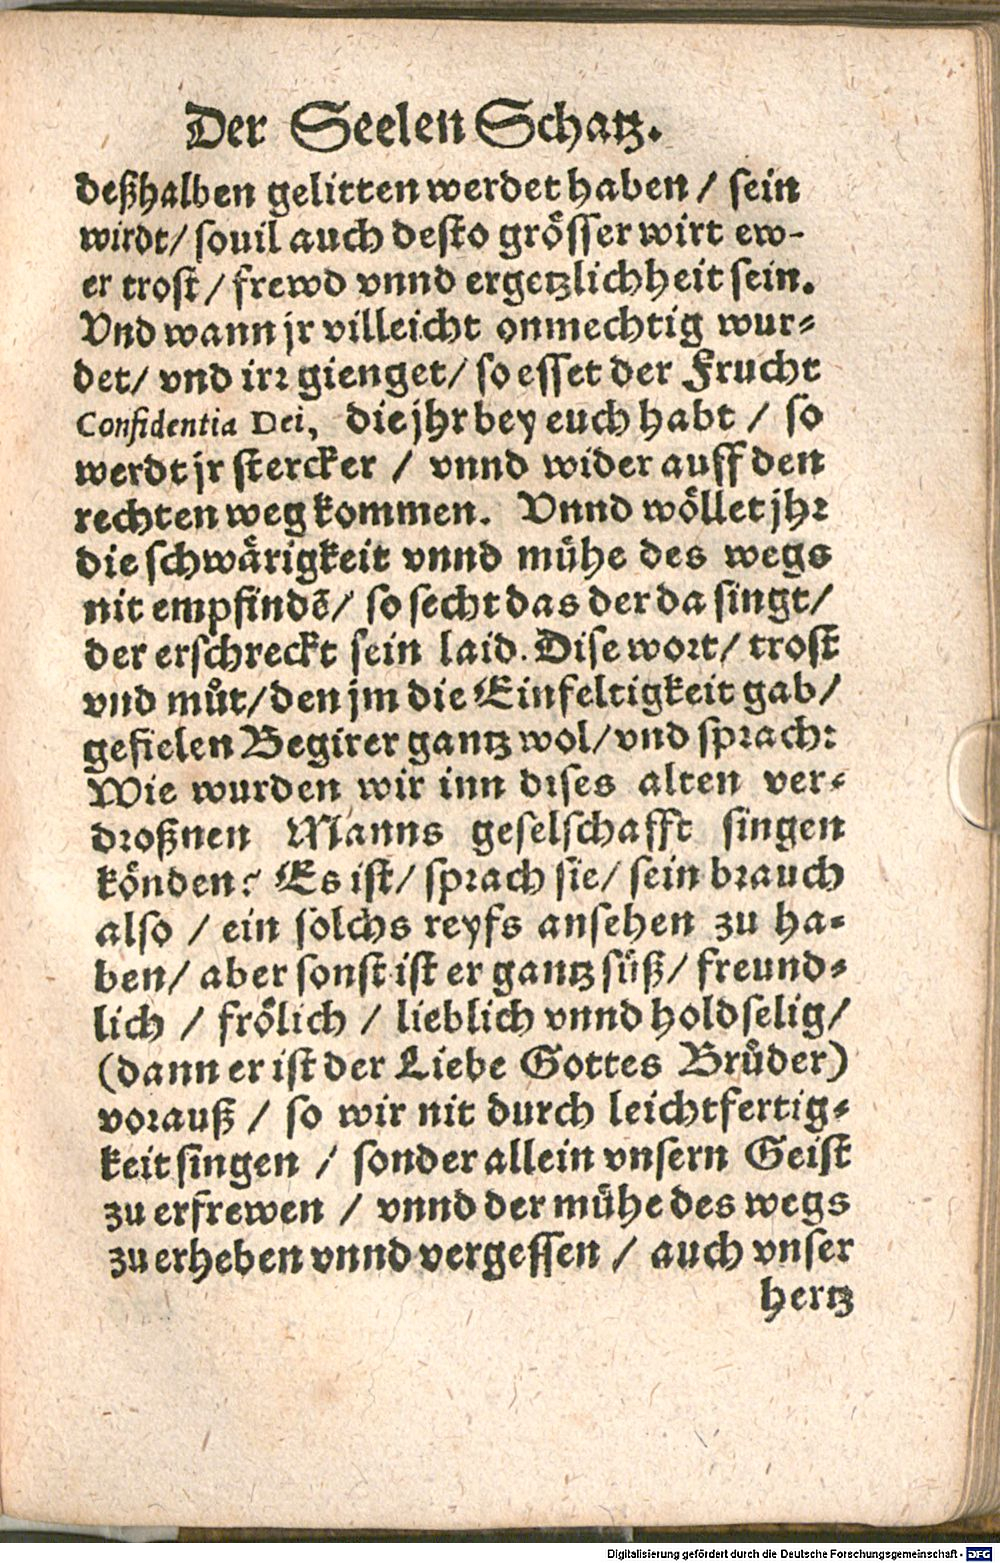 Der Seelen Schatz.
deßhalben gelitten werdet haben / sein
wirdt / souil auch desto grösser wirt ew-
er trost / frewd vnnd ergetzlichheit sein.
Vnd wann jr villeicht onmechtig wur-
det / vnd irr gienget / so esset der Frucht
Confidentia Dei, die jhr bey euch habt / so
werdt jr stercker / vnnd wider auff den
rechten weg kommen. Vnnd wöllet jhr
die schwärigkeit vnnd mühe des wegs
nit empfindē / so secht das der da singt /
der erschreckt sein laid. Dise wort / trost
vnd můt / den jm die Einfeltigkeit gab /
gefielen Begirer gantz wol / vnd sprach:
Wie wurden wir inn dises alten ver-
droßnen Manns geselschafft singen
könden? Es ist / sprach sie / sein brauch
also / ein solchs reyfs ansehen zu ha-
ben / aber sonst ist er gantz süß / freund-
lich / frölich / lieblich vnnd holdselig /
(dann er ist der Liebe Gottes Brůder)
vorauß / so wir nit durch leichtfertig-
keit singen / sonder allein vnsern Geist
zu erfrewen / vnnd der mühe des wegs
zu erheben vnnd vergessen / auch vnser
hertz
Digitalisierung gefördert durch die Deutsche Forschungsgemeinschaft - DFG